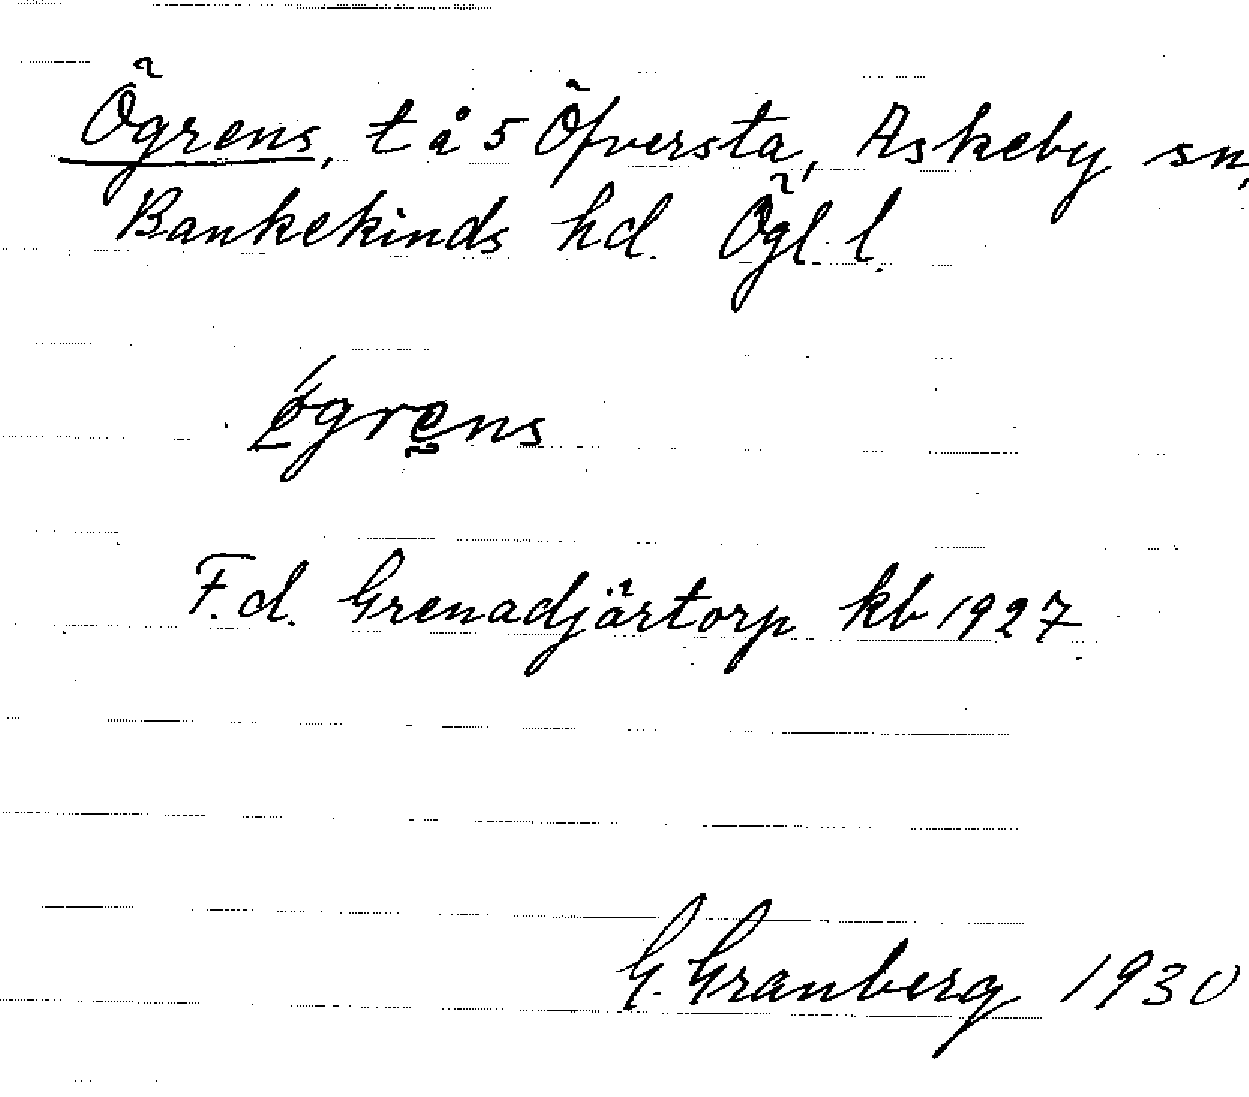 Ögrens, t å 5 Öfversta, Askeby sn,
Bankekinds hd. Ögl. l.
ǿgrens
F.d. Grenadjärtorp kb 1927
G. Granberg 1930